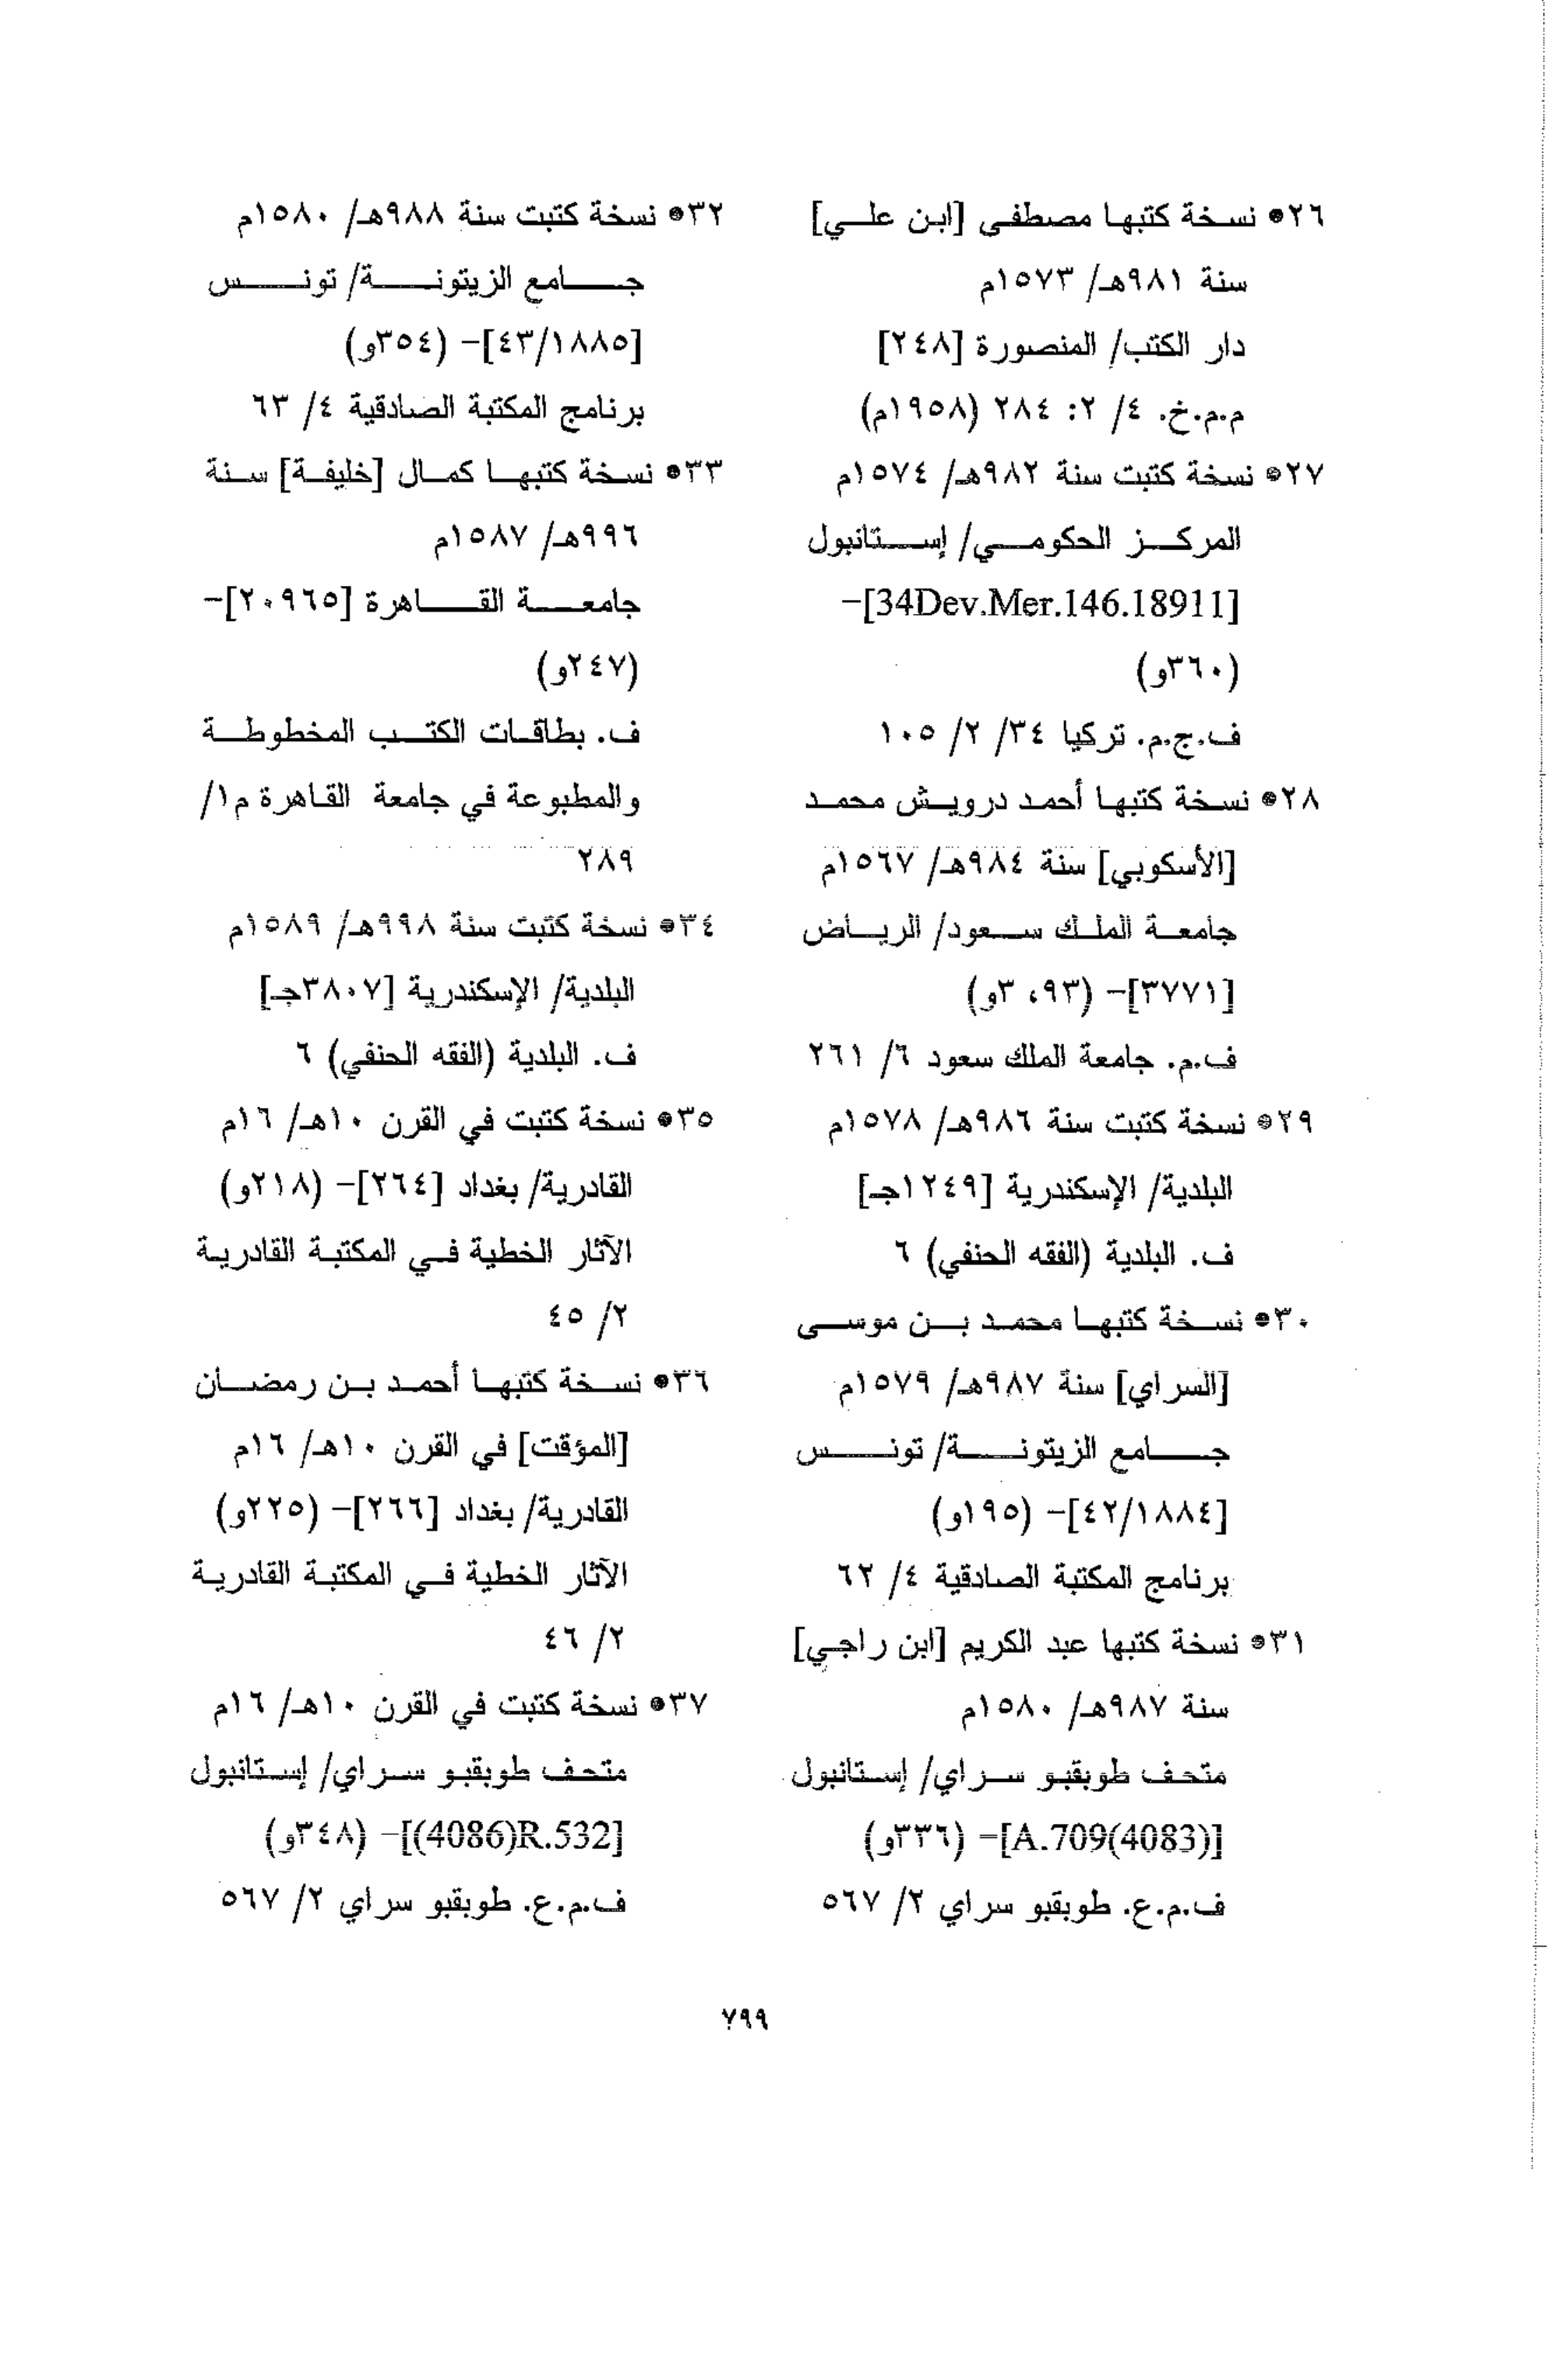 ٢٦• نسخة كتبها مصطفى [ابن علي]
سنة ٩٨١هـ/ ١٥٧٣م
دار الكتب/ المنصورة [٢٤٨]
م.م.خ. ٤/ ٢: ٢٨٤ (١٩٥٨م)
٢٧• نسخة كتبت سنة ٩٨٢هـ/ ١٥٧٤م
المركز الحكومي/ إستانبول
[34Dev.Mer.146.18911]–
(٣٦٠و)
ف.ج.م. تركيا ٣٤/ ٢/ ١٠٥
٢٨• نسخة كتبها أحمد درويش محمد
[الأسكوبي] سنة ٩٨٤هـ/ ١٥٦٧م
جامعة الملك سعود/ الرياض
[٣٧٧١]– (٩٣، ٣و)
ف.م. جامعة الملك سعود ٦/ ٢٦١
٢٩• نسخة كتبت سنة ٩٨٦هـ/ ١٥٧٨م
البلدية/ الإسكندرية [١٢٤٩جـ]
ف. البلدية (الفقه الحنفي) ٦
٣٠• نسخة كتبها محمد بن موسى
[السراي] سنة ٩٨٧هـ/ ١٥٧٩م
جامع الزيتونة/ تونس
[٤٢/١٨٨٤]– (١٩٥و)
برنامج المكتبة الصادقية ٤/ ٦٢
٣١• نسخة كتبها عبد الكريم [ابن راجي]
سنة ٩٨٧هـ/ ١٥٨٠م
متحف طوبقبو سراي/ إستانبول
[A.709(4083)]– (٣٣٦و)
ف.م.ع. طوبقبو سراي ٢/ ٥٦٧
٣٢• نسخة كتبت سنة ٩٨٨هـ/ ١٥٨٠م
جامع الزيتونة/ تونس
[٤٣/١٨٨٥]– (٣٥٤و)
برنامج المكتبة الصادقية ٤/ ٦٣
٣٣• نسخة كتبها كمال [خليفة] سنة
٩٩٦هـ/ ١٥٨٧م
جامعة القاهرة [٢٠٩٦٥]–
(٢٤٧و)
ف. بطاقات الكتب المخطوطة
والمطبوعة في جامعة القاهرة م١/
٢٨٩
٣٤• نسخة كتبت سنة ٩٩٨هـ/ ١٥٨٩م
البلدية/ الإسكندرية [٣٨٠٧جـ]
ف. البلدية (الفقه الحنفي) ٦
٣٥• نسخة كتبت في القرن ١٠هـ/ ١٦م
القادرية/ بغداد [٢٦٤]– (٢١٨و)
الآثار الخطية في المكتبة القادرية
٢/ ٤٥
٣٦• نسخة كتبها أحمد بن رمضان
[المؤقت] في القرن ١٠هـ/ ١٦م
القادرية/ بغداد [٢٦٦]– (٢٢٥و)
الآثار الخطية في المكتبة القادرية
٢/ ٤٦
٣٧• نسخة كتبت في القرن ١٠هـ/ ١٦م
متحف طوبقبو سراي/ إستانبول
[(4086)R.532]– (٣٤٨و)
ف.م.ع. طوبقبو سراي ٢/ ٥٦٧
٧٩٩